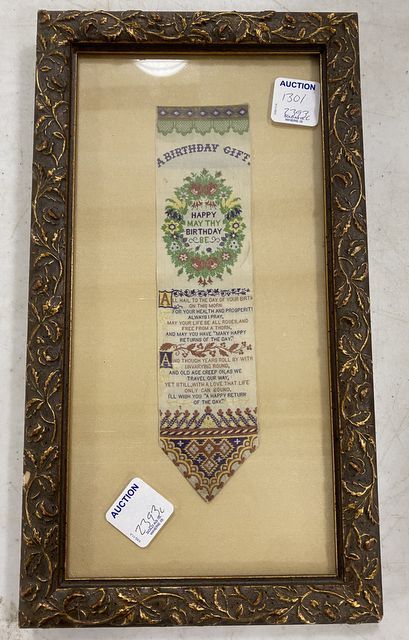 AUCTION
1301
2393c
A BIRTHDAY GIFT
HAPPY
MAY THY
BIRTHDAY
BE
ALL HAIL TO THE DAY OF YOUR BIRTH
ON THIS MORN
FOR YOUR HEALTH AND PROSPERITY
ALWAYS I PRAY,
MAY YOUR LIFE BE ALL ROSES, AND
FREE FROM A THORN,
AND MAY YOU HAVE "MANY HAPPY
RETURNS OF THE DAY."
AND THOUGH YEARS ROLL BY WITH
UNVARYING ROUND,
AND OLD AGE CREEP ON, AS WE
TRAVEL OUR WAY,
YET STILL, WITH A LOVE THAT LIFE
ONLY CAN BOUND,
I'LL WISH YOU "A HAPPY RETURN
OF THE DAY."
AUCTION
2393c